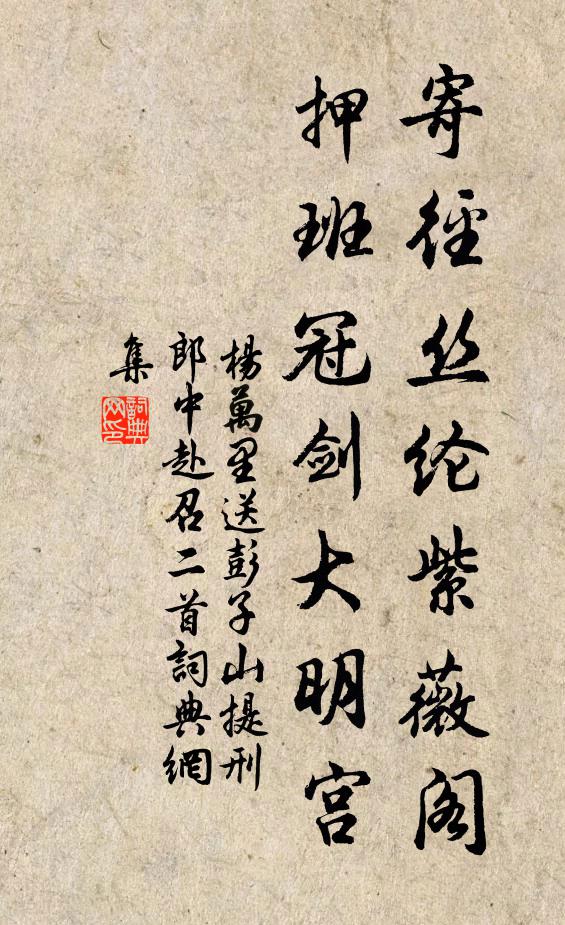 寄徑丝纶紫薇阁
押班冠剑大明宫
楊萬里送彭子山提刑
郎中赴召二首詞典網
集
詞典网印